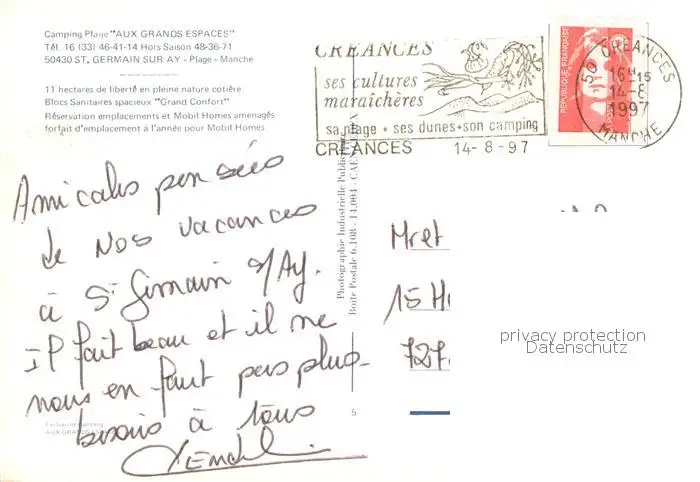 Camping Plage "AUX GRANDS ESPACES"
Tél. 16 (33) 46-41-14 Hors Saison 48-36-71
50430 ST. GERMAIN SUR AY - Plage - Manche
11 hectares de liberté en pleine nature cotière
Blocs Sanitaires spacieux "Grand Confort"
Réservation emplacements et Mobil Homes amenagés
forfait d'emplacement à l'année pour Mobil Homes
CREANCES
ses cultures
maraîchères
sa plage * ses dunes * son camping
CREANCES 14-8-97
REPUBLIQUE FRANÇAISE
50 CREANCES
16H15
14-8
1997
MANCHE
Amicales pensées
de nos vacances
à St Germain s/Ay.
il fait beau et il ne
nous en faut pas plus-
bisous à tous
Photographie Industrielle
Boite Postale 6.108 - 14.004 - CAEN
Mr et
15
727
privacy protection
Datenschutz
5